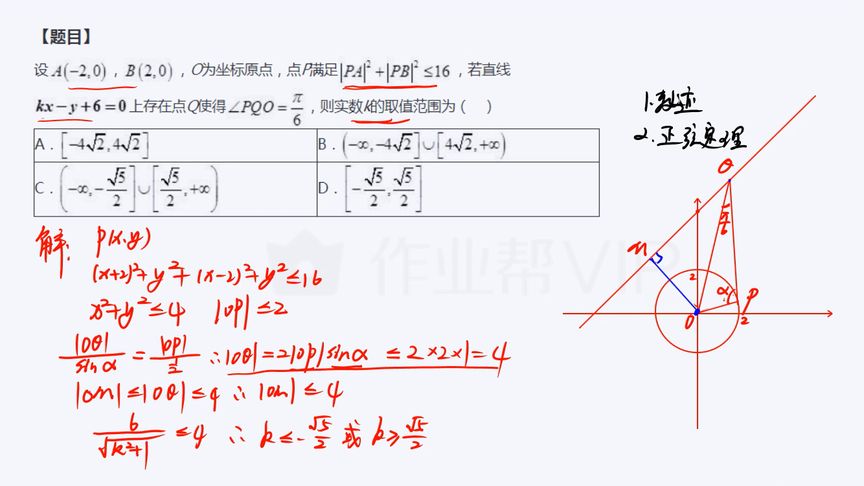 【题目】
设 A(-2,0)，B(2,0)，O为坐标原点，点P满足|PA|²+|PB|²≤16，若直线
kx-y+6=0上存在点Q使得∠PQO=π/6，则实数k的取值范围为（ ）
A. [-4√2,4√2]
B. (-∞,-4√2]∪[4√2,+∞)
C. (-∞,-√5/2]∪[√5/2,+∞)
D. [-√5/2,√5/2]
1.
2.正弦定理
解: P(x,y)
(x+2)²+y²+(x-2)²+y²≤16
x²+y²≤4 |OP|≤2
|OQ|/sinα=|OP|/(1/2) ∴|OQ|=2|OP|sinα ≤2×2×1=4
|OM|≤|OQ|≤4 ∴|OM|≤4
6/√(k²+1) ≤4 ∴ k≤-√5/2 或 k≥√5/2
Q
π/6
M
2
α
P
O
2
作业帮VIP